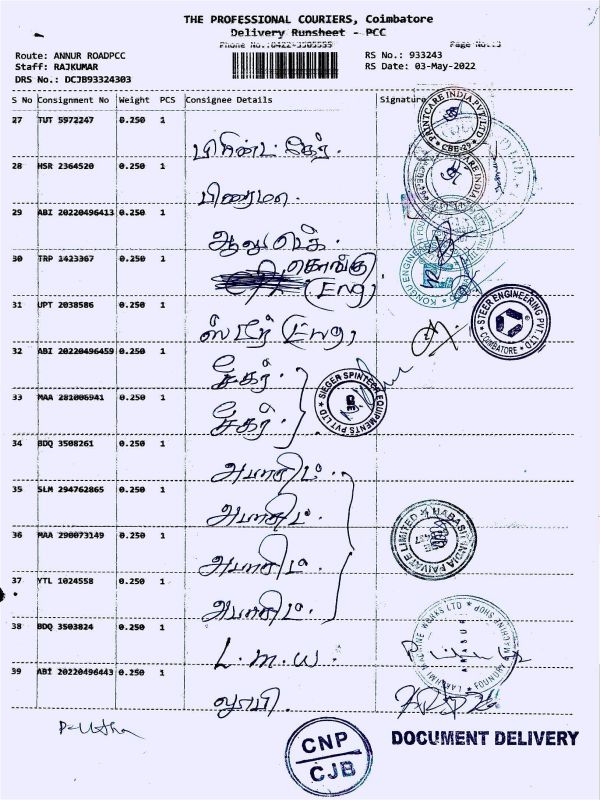 THE PROFESSIONAL COURIERS, Coimbatore
Delivery Runsheet - PCC
Phone No.:0422-3505555 Page No.:3
Route: ANNUR ROADPCC RS No.: 933243
Staff: RAJKUMAR RS Date: 03-May-2022
DRS No.: DCJB93324303
S No Consignment No Weight PCS Consignee Details Signature
27 TUT 5972247 0.250 1
28 HSR 2364520 0.250 1
29 ABI 20220496413 0.250 1
30 TRP 1423367 0.250 1
கொங்கு
(Eng)
31 UPT 2038586 0.250 1
ஸ்டீர் (Eng)
32 ABI 20220496459 0.250 1
சீகர்
33 MAA 281006941 0.250 1
சீகர்
34 BDQ 3508261 0.250 1
அபாசிட்
35 SLM 294762865 0.250 1
அபாசிட்
36 MAA 290073149 0.250 1
அபாசிட்
37 YTL 1024558 0.250 1
அபாசிட்
38 BDQ 3503824 0.250 1
L.M.W.
39 ABI 20220496443 0.250 1
PAINTCARE INDIA PVT LTD
CBE-29
STEER ENGINEERING PVT. LTD
COIMBATORE
SIEGER SPINTECH EQUIPMENTS PVT LTD
HABASIT INDIA PRIVATE LIMITED
LAKSHMI MACHINE WORKS LTD
MACHINE SHOP
FOUNDRY
ARASUR
CNP
CJB
DOCUMENT DELIVERY